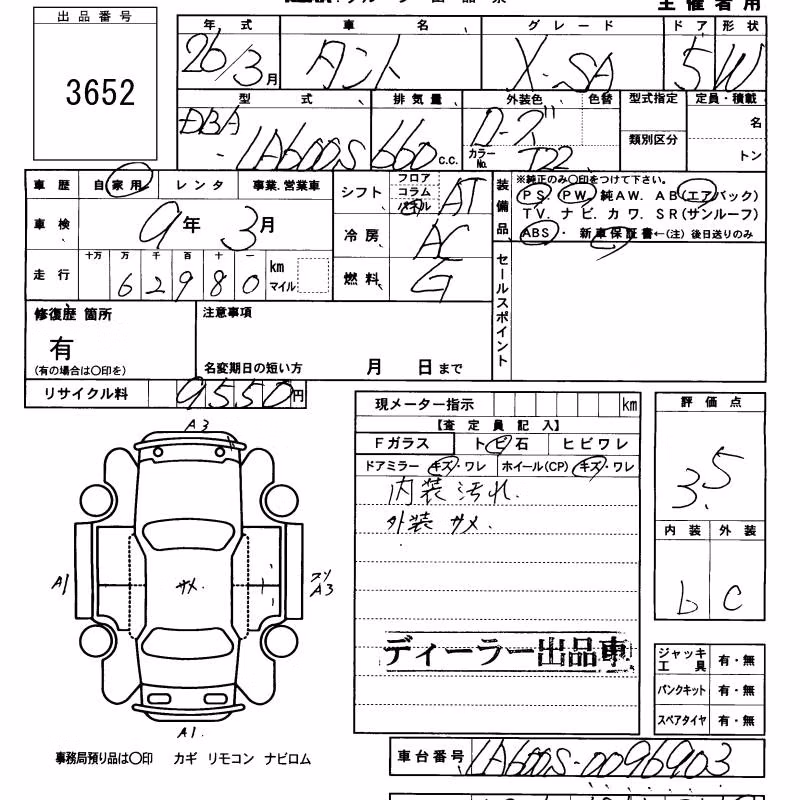 主催者用
出品番号
3652
年式 車名 グレード ドア 形状
26/3月 タント X-SA 5 W
型式 排気量 外装色 色替 型式指定 定員・積載
DBA
-LA600S 660c.c. ローズ カラーNo. T22 類別区分 名
トン
車歴 自家用 レンタ 事業.営業車
車検 9年 3月
走行 十万 万 千 百 十 一 km マイル
6 2 9 8 0
シフト フロア コラム パネル AT
冷房 AC
燃料 G
装備品 ※純正のみ〇印をつけて下さい。
PS. PW. 純AW. AB(エアバック)
TV. ナビ. カワ. SR(サンルーフ)
ABS・ 新車保証書←(注) 後日送りのみ
セールスポイント
修復歴 箇所
有
(有の場合は〇印を)
注意事項
名変期日の短い方 月 日まで
リサイクル料 9550円
現メーター指示 km
【査定員記入】
Fガラス トビ石 ヒビワレ
ドアミラー キズ・ワレ ホイール(CP) キズ・ワレ
内装汚れ.
外装サメ.
ディーラー出品車
評価点
3.5
内装 外装
b c
A3
A1 サメ. A3
A1.
ジャッキ工具 有・無
パンクキット 有・無
スペアタイヤ 有・無
事務局預り品は〇印 カギ リモコン ナビロム
車台番号 LA600S-0096903